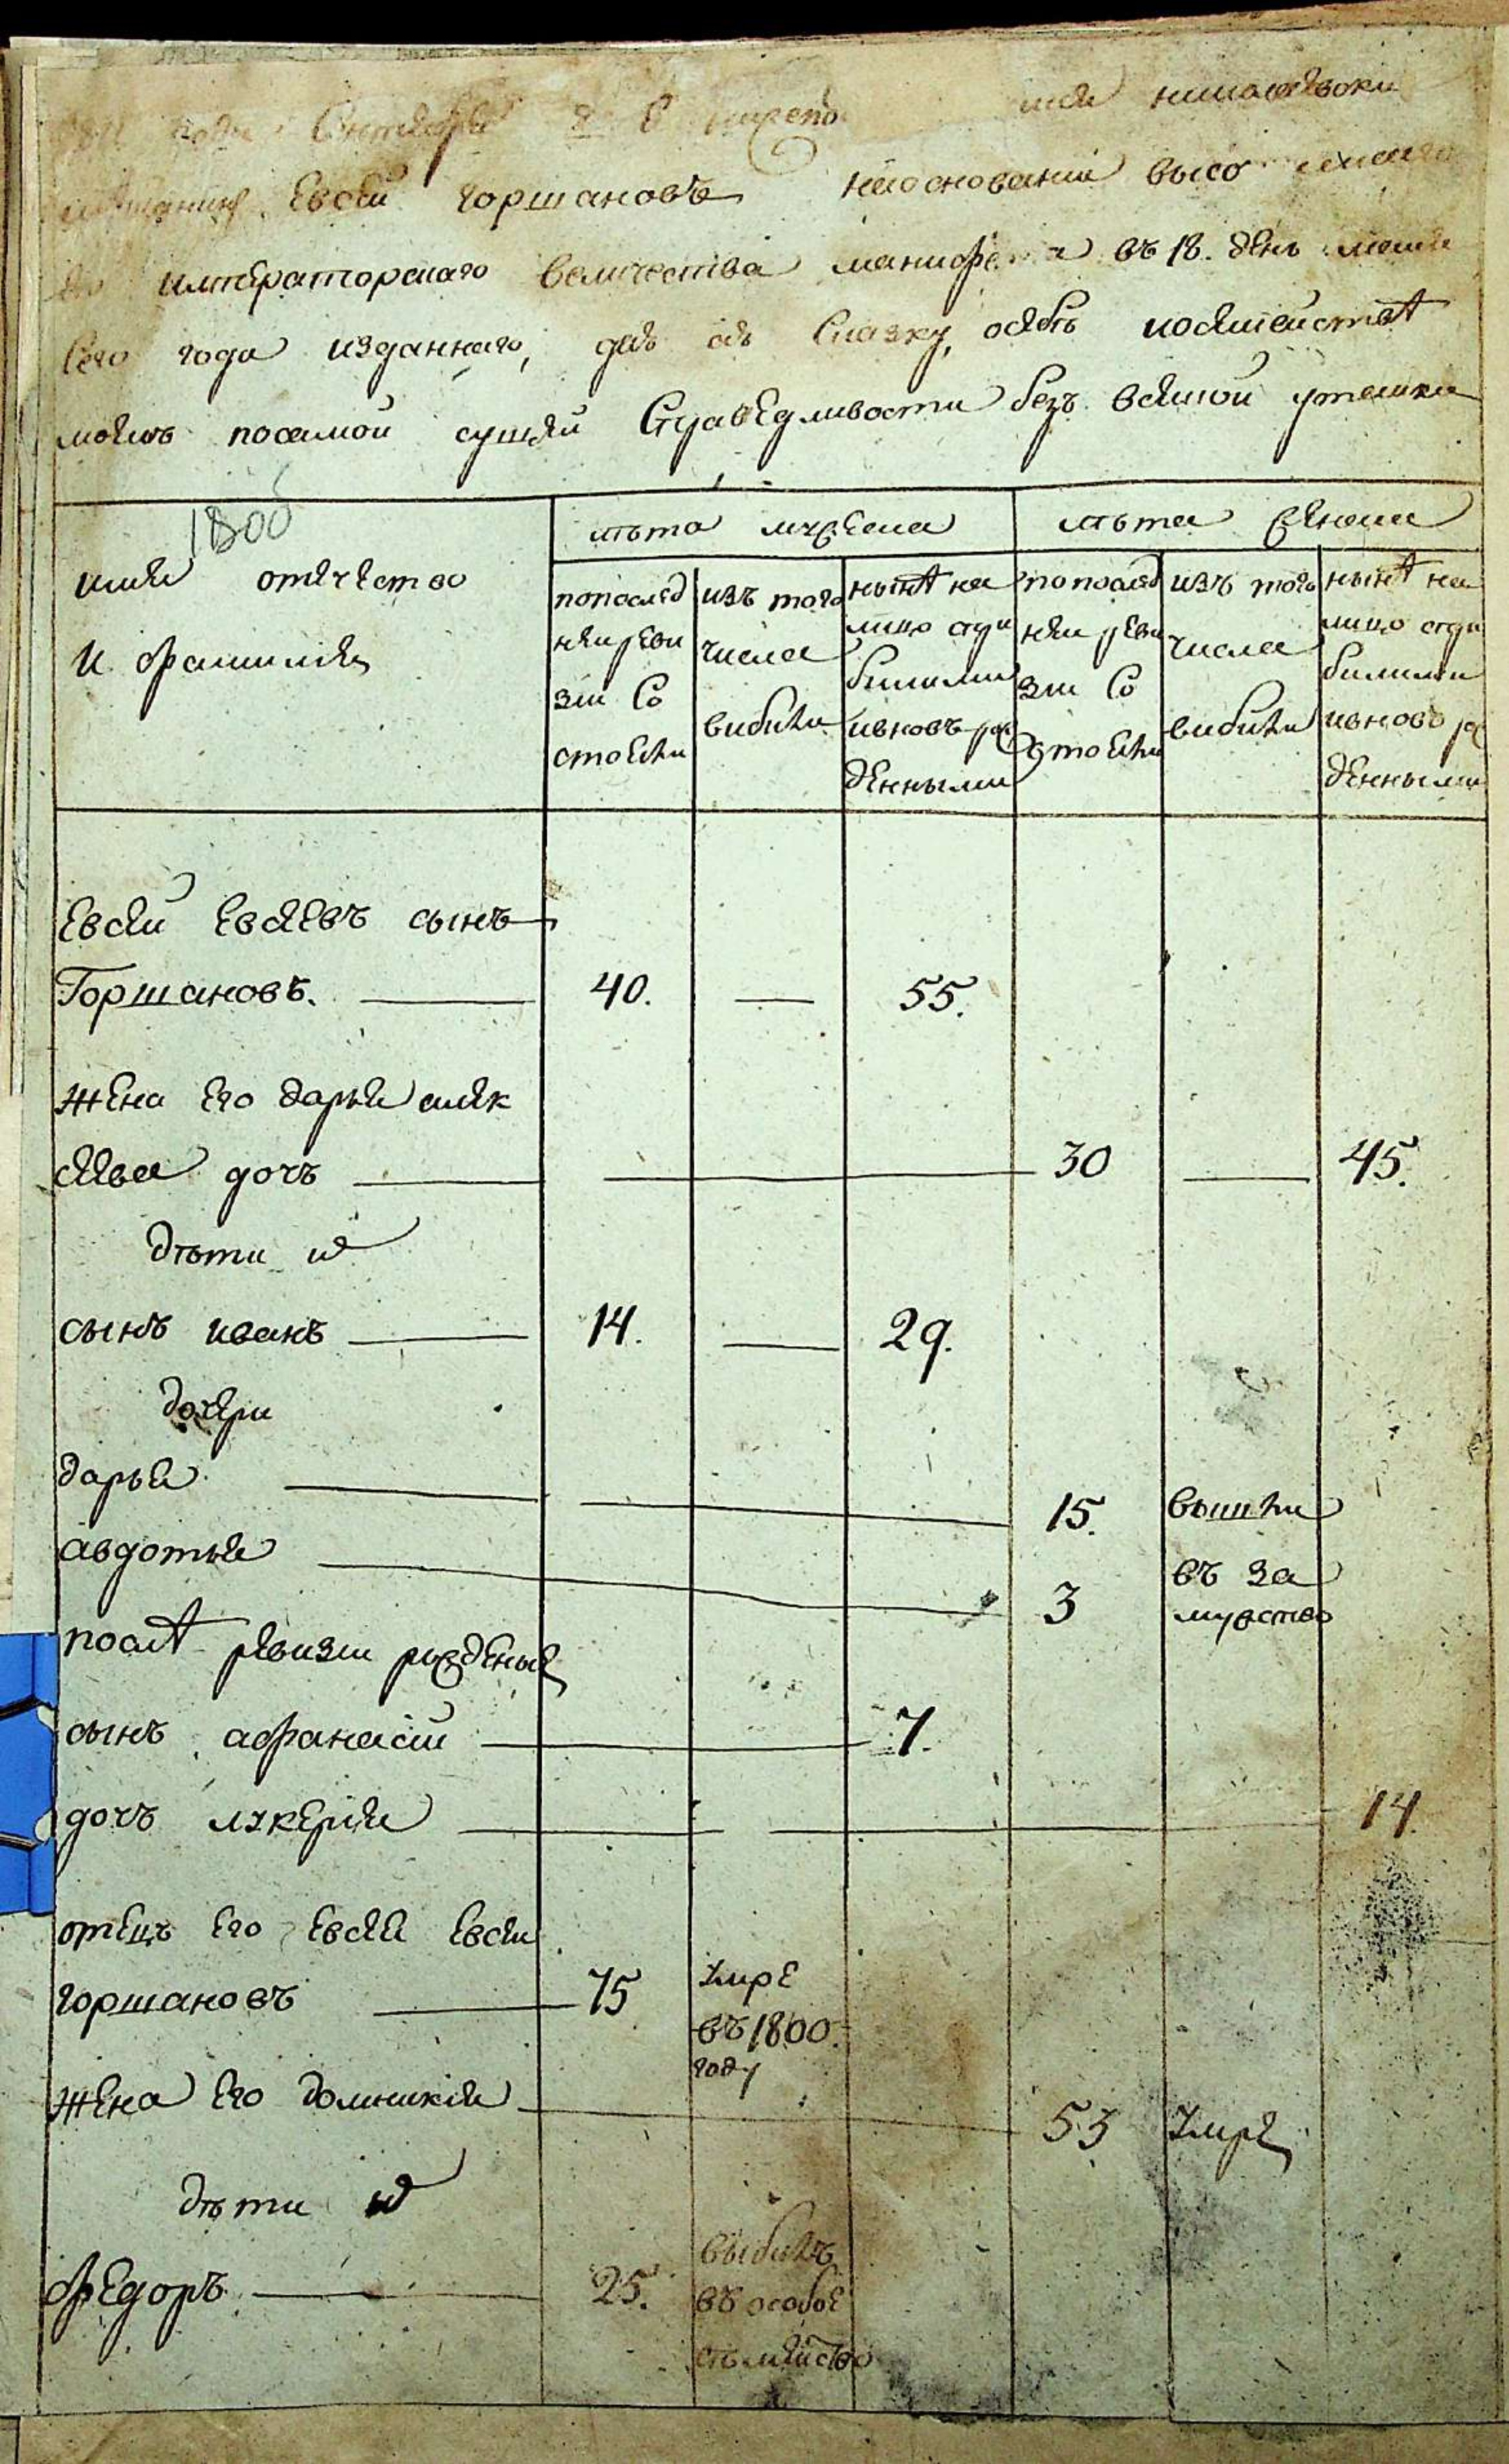 года Сентября
мещанинъ Евсей горшановъ наосновании высо
императорскаго величества манифе въ 18. день маия
сего года изданнаго, далъ сию сказку, осебѣ исемействѣ
моемъ посамой сущей Справедливости безъ всякой утайки
1800
имя отечество
и фамилия
лѣта мужеска
лѣта женска
попослед
ней реви
зии Со
стоели
изъ того
числа
вибыли
нынѣ на
лицо сгри
былими
ивновь рож
денными
попослед
ней реви
зии Со
стоели
изъ того
числа
вибыли
нынѣ на
лицо сгри
былими
ивновь рож
денными
Евсей Евсеевъ сынъ
Горшановъ. 40. 55.
жена Его дарья алек
сеева дочь 30 45.
дѣти их
сынъ иванъ 14. 29.
дочери
дарья 15. вышли
авдотья 3 въ за
мужство
послѣ ревизии рожденыя
сынъ афанасий 7.
дочь лукерия 14.
отецъ Его Евсей Евсеи
горшановъ 75 умре
въ 1800.
году
жена Его домникия 53 умре
дѣти их
федоръ 25. выбылъ
въ особое
сѣмейство